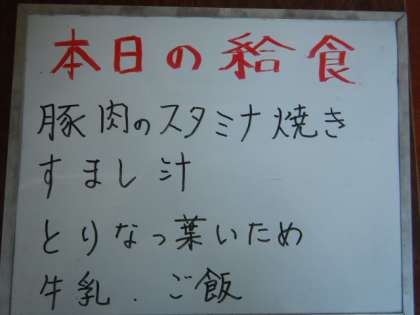 本日の給食
豚肉のスタミナ焼き
すまし汁
とりなっ葉いため
牛乳．ご飯